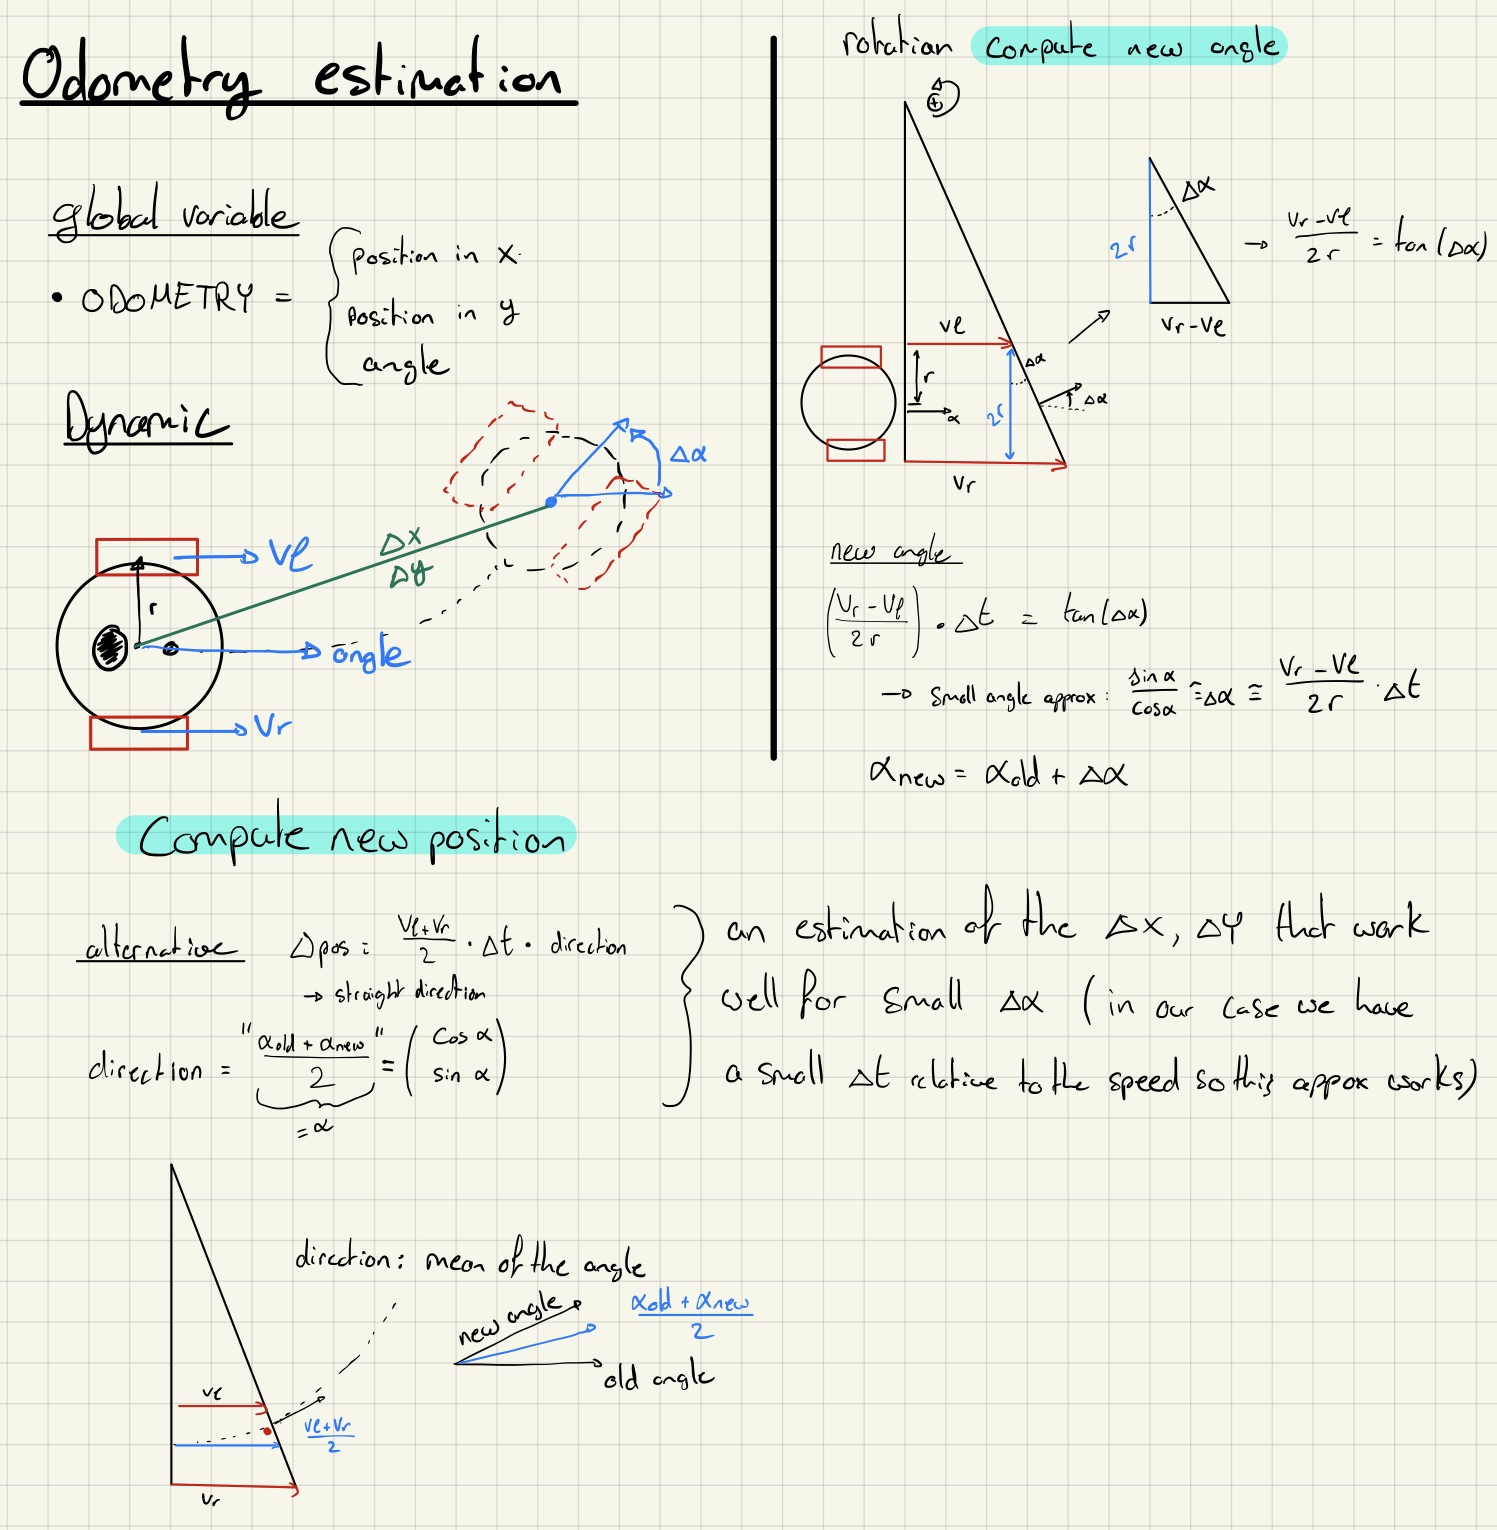 Odometry estimation
global variable
• ODOMETRY = { position in x
position in y
angle
Dynamic
Δα
Δx
Δy
Vl
r
angle
Vr
rotation compute new angle
+
Δα
2r
Vr-Vl
→ (Vr-Vl)/(2r) = tan(Δα)
Vl
r
α
2r
Δα
Δα
Vr
new angle
((Vr-Vl)/(2r)) • Δt = tan(Δα)
→ small angle approx: sin α/cos α ≅ Δα ≅ (Vr-Vl)/(2r) · Δt
αnew = αold + Δα
Compute new position
alternative Δpos = (Vl+Vr)/2 · Δt · direction
→ straight direction
direction = "(αold + αnew)/2" = (cos α
sin α)
= α
} an estimation of the Δx, Δy that work
well for small Δα (in our case we have
a small Δt relative to the speed so this appox works)
direction: mean of the angle
new angle
(αold + αnew)/2
old angle
Vl
(Vl+Vr)/2
Vr